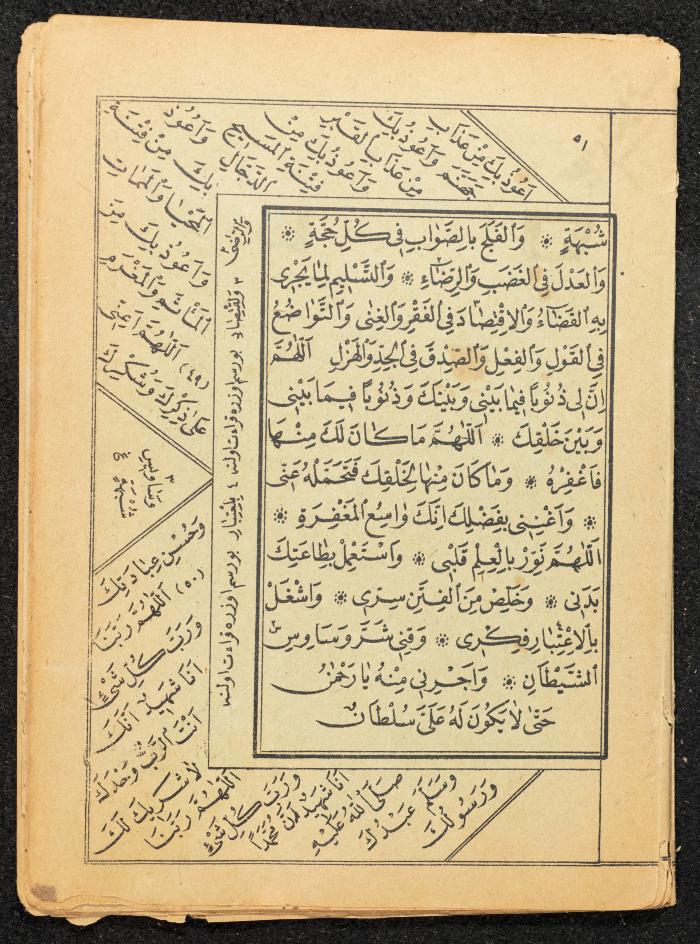 ٥١
شُبْهَةٍ ۞ وَالْفَلَجَ بِالصَّوَابِ فِى كُلِّ حُجَّةٍ ۞
وَالْعَدْلَ فِى الْغَضَبِ وَالرِّضَاءِ ۞ وَالتَّسْلِيمَ لِمَا يَجْرِى
بِهِ الْقَضَاءُ وَالْاِقْتِصَادَ فِى الْفَقْرِ وَالْغِنٰى وَالتَّوَاضُعَ
فِى الْقَوْلِ وَالْفِعْلِ وَالصِّدْقَ فِى الْجِدِّ وَالْهَزْلِ اَللّٰهُمَّ
اِنَّ لِى ذُنُوبًا فِيمَا بَيْنِى وَبَيْنَكَ وَذُنُوبًا فِيمَا بَيْنِى
وَبَيْنَ خَلْقِكَ ۞ اَللّٰهُمَّ مَا كَانَ لَكَ مِنْهَا
فَاغْفِرْهُ ۞ وَمَا كَانَ مِنْهَا لِخَلْقِكَ فَتَحَمَّلْهُ عَنِّى
۞ وَاَغْنِنِى بِفَضْلِكَ اِنَّكَ وَاسِعُ الْمَغْفِرَةِ ۞
اَللّٰهُمَّ نَوِّرْ بِالْعِلْمِ قَلْبِى ۞ وَاسْتَعْمِلْ بِطَاعَتِكَ
بَدَنِى ۞ وَخَلِّصْ مِنَ الْفِتَنِ سِرِّى ۞ وَاشْغَلْ
بِالْاِعْتِبَارِ فِكْرِى ۞ وَقِنِى شَرَّ وَسَاوِسِ
الشَّيْطَانِ ۞ وَاَجِرْنِى مِنْهُ يَا رَحْمٰنُ
حَتّٰى لَا يَكُونَ لَهُ عَلَىَّ سُلْطَانٌ
اَعُوذُ بِكَ مِنْ عَذَابِ
جَهَنَّمَ وَاَعُوذُ بِكَ
مِنْ عَذَابِ الْقَبْرِ
وَاَعُوذُ بِكَ مِنْ
فِتْنَةِ الْمَسِيحِ
الدَّجَّالِ وَاَعُوذُ
بِكَ مِنْ فِتْنَةِ
الْمَحْيَا وَالْمَمَاتِ
وَاَعُوذُ بِكَ مِنَ
الْمَاْثَمِ وَالْمَغْرَمِ
(٤٩) اَللّٰهُمَّ اَعِنِّى
عَلٰى ذِكْرِكَ وَشُكْرِكَ
وَحُسْنِ عِبَادَتِكَ
(٥٠) اَللّٰهُمَّ رَبَّنَا
وَرَبَّ كُلِّ شَىْءٍ
اَنَا شَهِيدٌ اَنَّكَ
اَنْتَ الرَّبُّ وَحْدَكَ
لَا شَرِيكَ لَكَ
اَللّٰهُمَّ رَبَّنَا
وَرَبَّ كُلِّ شَىْءٍ
اَنَا شَهِيدٌ اَنَّ مُحَمَّدًا
صَلَّى اللّٰهُ عَلَيْهِ
وَسَلَّمَ عَبْدُكَ
وَرَسُولُكَ
٣
وَسَاوِسِ
شُبْهَةٍ ٤
وَالرِّضٰى ٣ بو رسم اوزره قراءت اولنه ٤ بو رسم اوزره قراءت اولنه